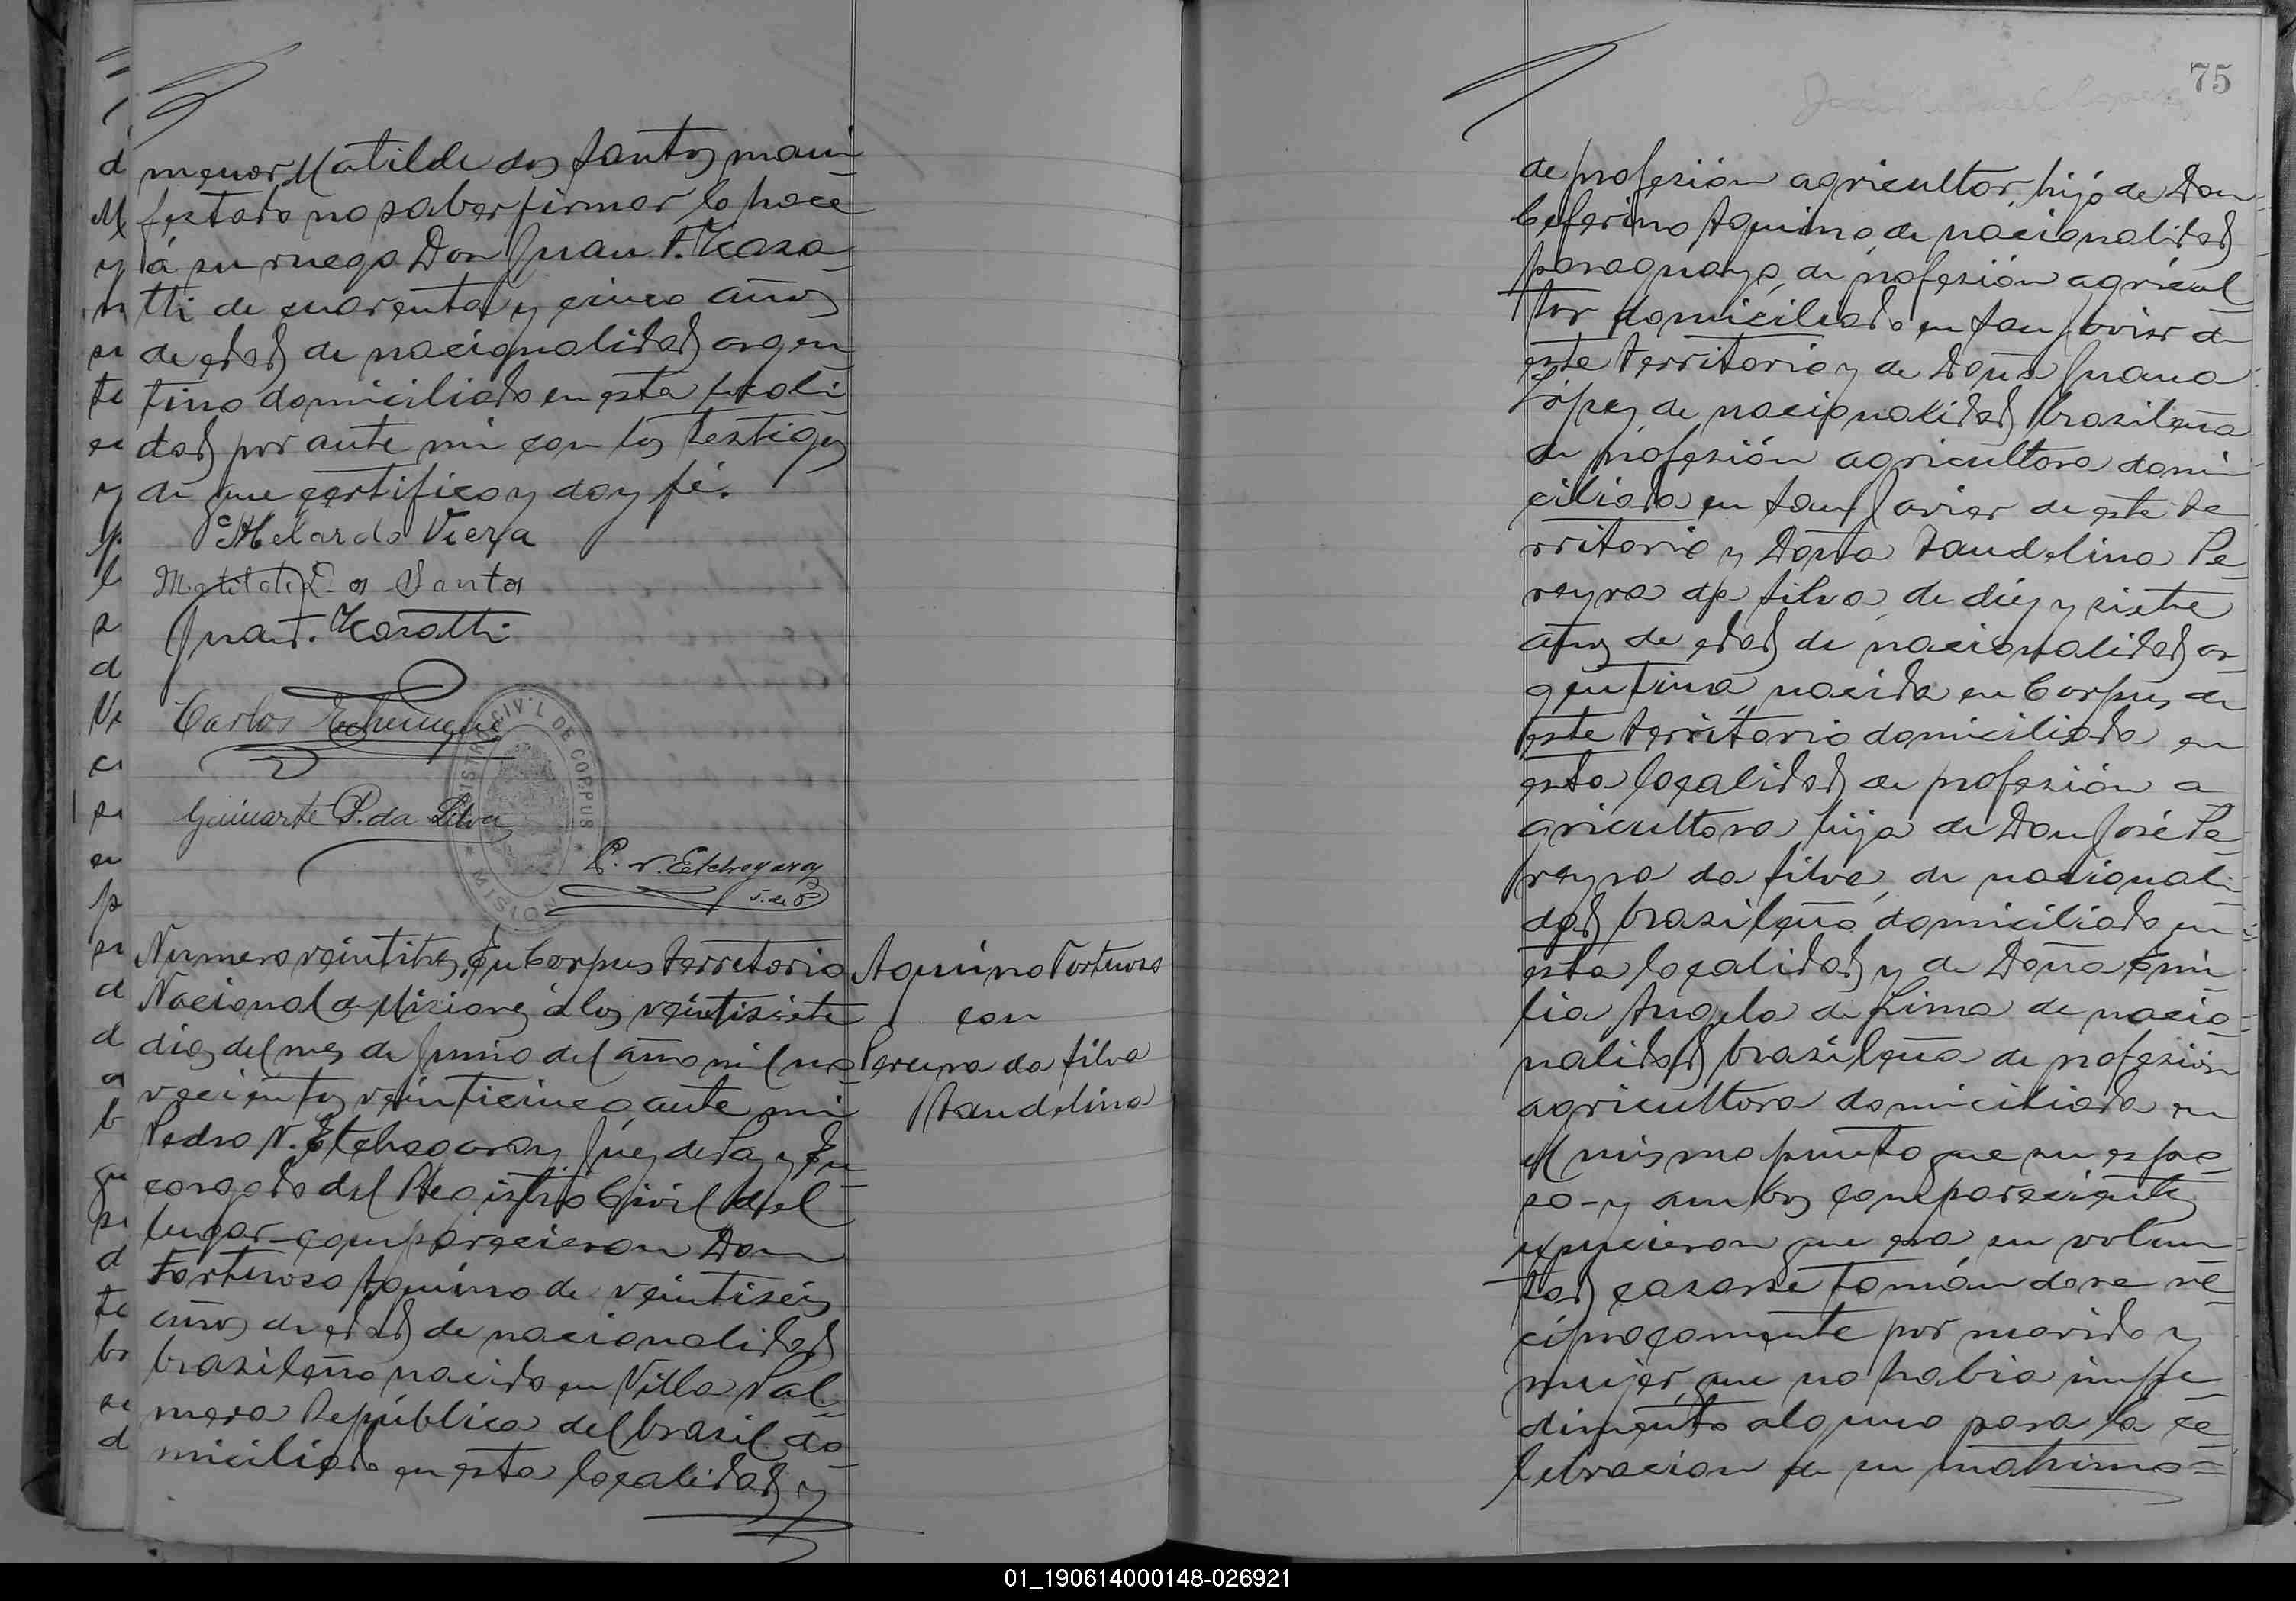 menor Matilde dos Santos mani
festado no saber firmar lo hace
á su ruego Don Juan F.
tti de cuarenta y cinco años
de edad de nacionalidad argen
tino domiciliado en esta locali
dad por ante mi con los testigos
de que certifico y doy fé.
Abelardo Viera
Matilde D os Santos
Juan F.
Carlos Echenique
Guinarte P. da Silva
REGISTRO CIVIL DE CORPUS
MISIONES
P. N. Etchegaray
J. de P.
Numero veintitres, En Corpus territorio
Nacional de Misiones á los veintisiete
dias del mes de Junio del año mil no
vecientos veinticinco ante mi
Pedro N. Etchegaray Juez de Paz y En
cargado del Registro Civil del
lugar comparecieron Don
Fortuoso Aquino de veintiseis
años de edad de nacionalidad
brasileño nacido en Villa Pal
mera República del Brasil do
miciliado en esta localidad y
Aquino Fortuoso
con
Pereyra da Silva
Laudelina
75
de profesión agricultor, hijo de Don
Ceferino Aquino de nacionalidad
paraguayo, de profesión agricul
tor domiciliado en San Javier de
este territorio y de Doña Juana
López de nacionalidad brasileña
de profesión agricultora domi
ciliada en San Javier de este te
rritorio y Doña Laudelina Pe
reyra da Silva de diez y siete
años de edad de nacionalidad ar
gentina, nacida en Corpus de
este territorio domiciliada en
esta localidad de profesión a
gricultora hija de Don José Pe
reyra da Silva, de nacionali
dad brasileño, domiciliado en
esta localidad y de Doña Emi
lia Angela de Lima de nacio
nalidad brasileña de profesión
agricultora domiciliada en
el mismo punto que su espo
so - y ambos comparecientes
expusieron que era su volun
tad casarse tomándose re
ciprocamente por marido y
mujer, que no habia impe
dimento alguno para la ce
lebracion de su matrimo
01_190614000148-026921